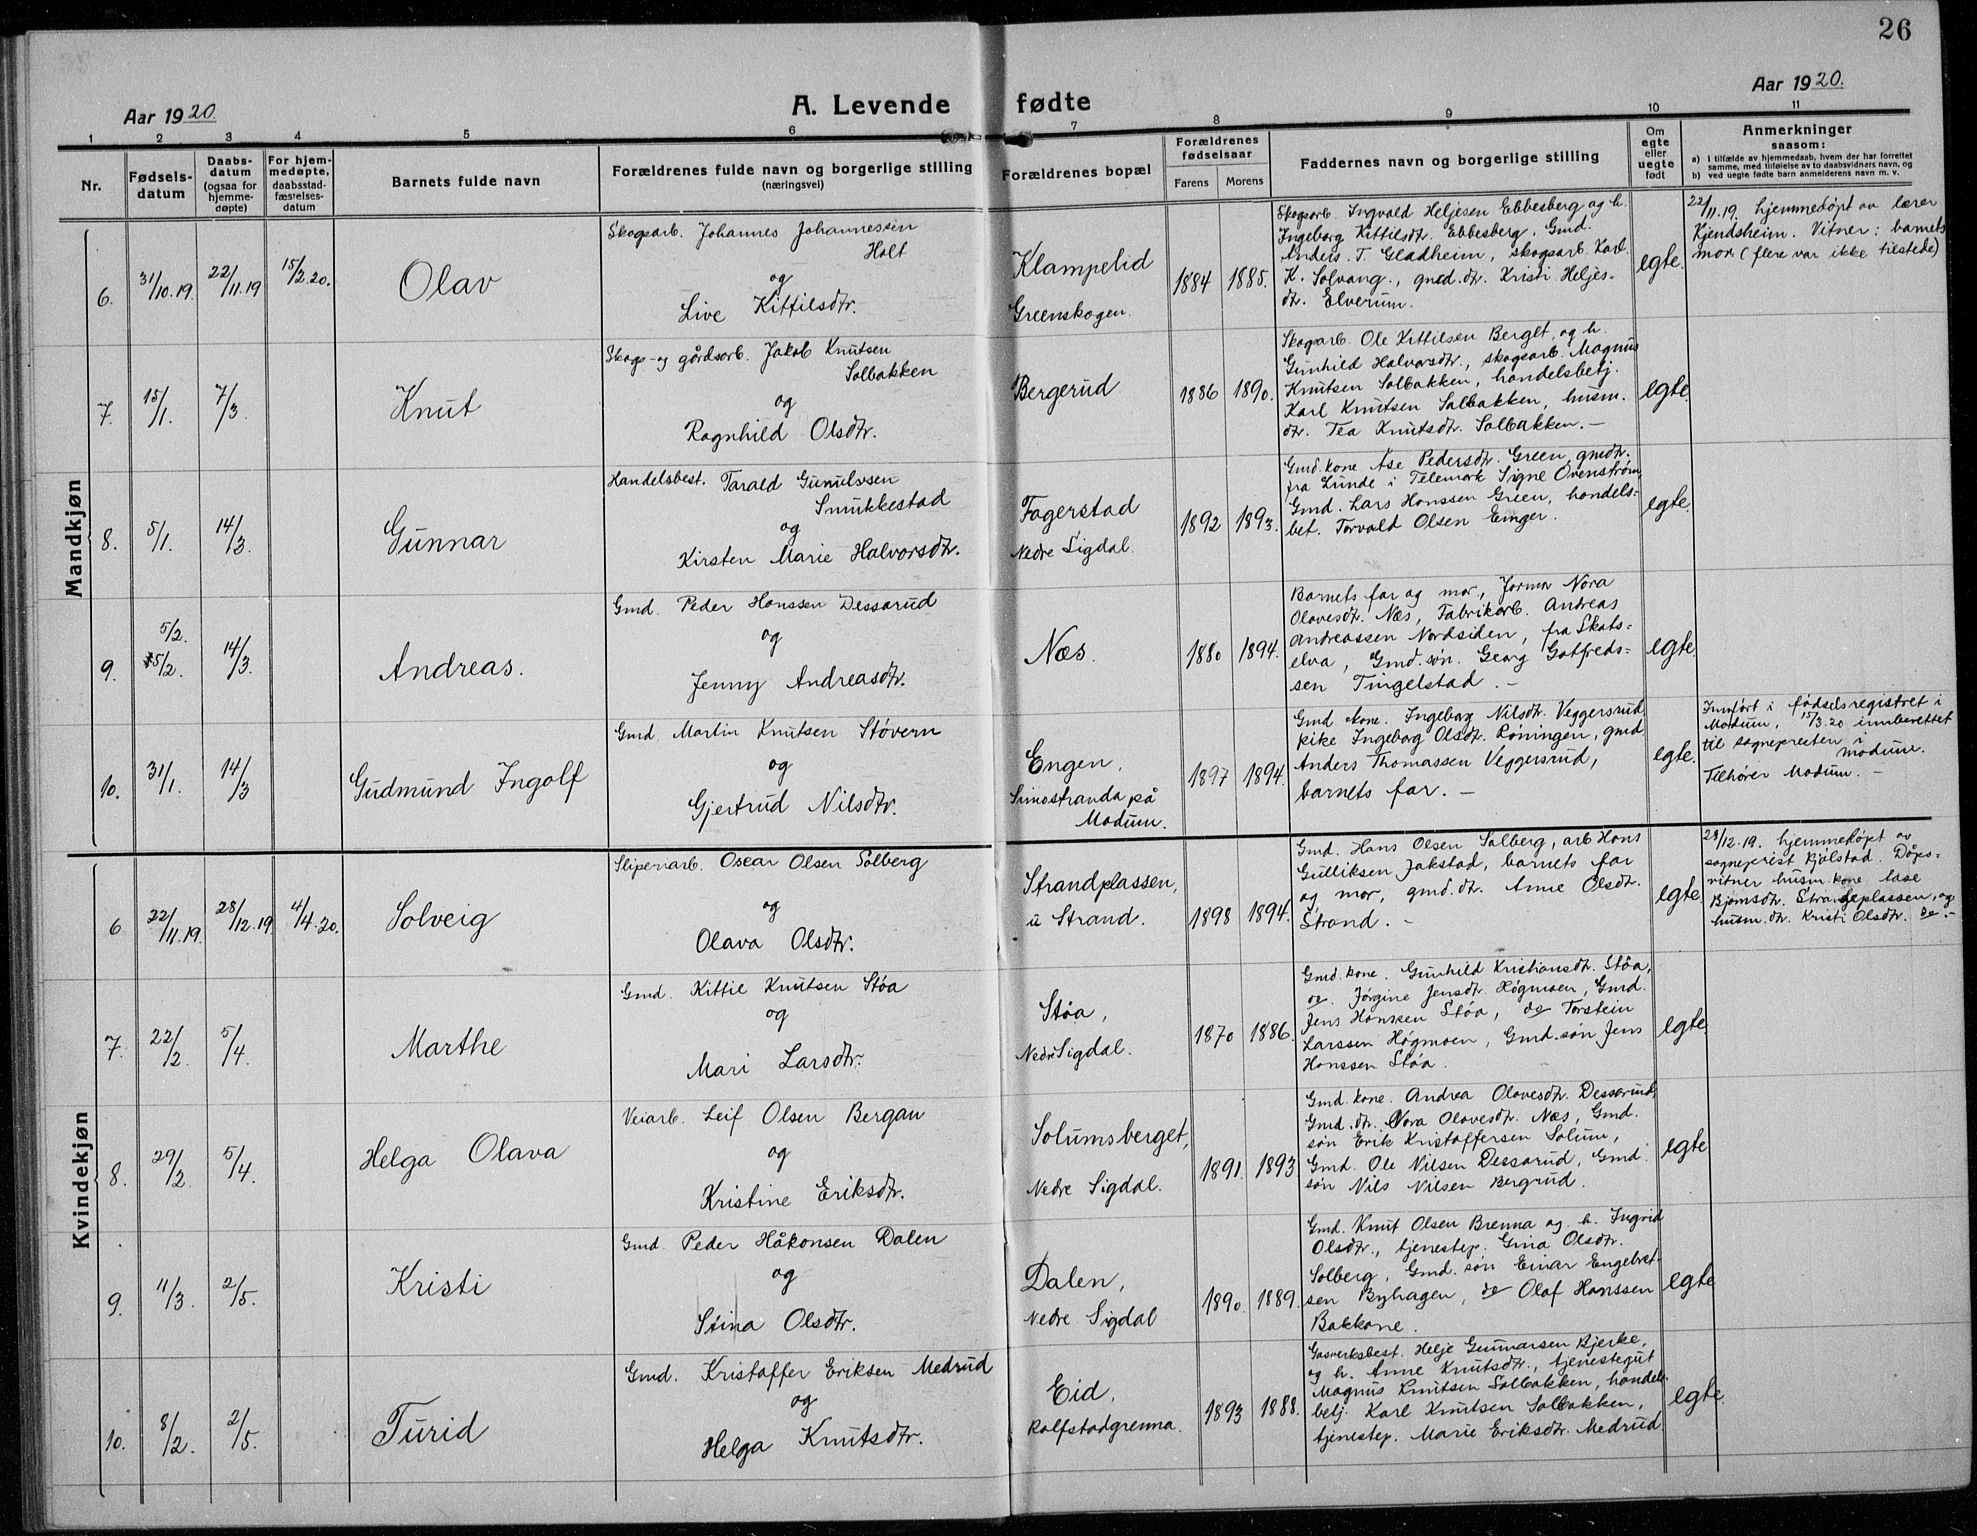 26
Aar 1920.
A. Levende fødte
Aar 1920.
1 2 3 4 5 6 7 8 9 10 11
Nr.
Fødsels-
datum
Daabs-
datum
(ogsaa for
hjemme-
døpte)
For hjem-
medøpte,
daabsstad-
fæstelses-
datum
Barnets fulde navn
Forældrenes fulde navn og borgerlige stilling
(næringsvei)
Forældrenes bopæl
Forældrenes
fødselsaar
Farens Morens
Faddernes navn og borgerlige stilling
Om
egte
eller
uegte
født
Anmerkninger
saasom:
a) I tilfælde av hjemmedaab, hvem der har forrettet
samme, med tilføielse av to daabsvidners navn, og
b) ved uegte fødte barn anmelderens navn m. v.
Mandkjøn
6. 31/10.19. 22/11.19 15/2.20. Olav
Skogsarb. Johannes Johannessen
Holt
og
Live Kittilsdtr.
Klampelid
Greenskogen.
1884 1885.
Skogsarb. Ingvald Heljesen Ebbesberg og h.
Ingeborg Kittilsdtr. Ebbesberg, Gmd.
Anders T. Gladheim, skogsarb. Karl
K. Solvang, gmd.dtr. Kristi Heljes-
dtr. Elverum.
egte.
22/11.19. hjemmedøpt av lærer
Kjendsheim. Vitner: barnets
mor (flere var ikke tilstede)
7. 15/1. 7/3. Knut
Skogs- og gårdsarb. Jakob Knutsen
Solbakken
og
Ragnhild Olsdtr.
Bergerud
1886 1890.
Skogarb. Ole Kittilsen Berget og h.
Gunhild Halvorsdtr., skogsarb. Magnus
Knutsen Solbakken, handelsbetj.
Karl Knutsen Solbakken, husm.
dtr. Tea Knutsdtr. Solbakken. -
egte.
8. 5/1. 14/3. Gunnar
Handelsbest. Tarald Gunulvsen
Smukkestad
og
Kirsten Marie Halvorsdtr.
Fagerstad
Nedre Sigdal.
1892 1893.
Gmd.kone Åse Pedersdtr. Green, gmdtr.
fra Lunde i Telemark Signe Ovenstrøm,
Gmd. Lars Hanssen Green, handels-
bet. Torvald Olsen Einger.
egte.
9. 5/2. 5/2. 14/3. Andreas.
Gmd. Peder Hanssen Dessarud
og
Jenny Andreasdtr.
Næs.
1880 1894.
Barnets far og mor, Jormor Nora
Olavesdtr. Næs, Fabrikarb. Andreas
Andreassen Nordsiden, fra Skots-
elva, Gmd.søn. Georg Gotfreds-
sen Tingelstad. -
egte.
10. 31/1. 14/3 Gudmund Ingolf
Gmd. Martin Knutsen Støvern
og
Gjertrud Nilsdtr.
Engen,
Simostranda på
Modum.
1897 1894.
Gmd kone. Ingeborg Nilsdtr. Veggersrud,
pike Ingeborg Olsdtr. Røningen, gmd
Anders Thomassen Veggersrud,
barnets far. -
egte.
Innført i fødselsregistret i
Modum, 15/3.20 innberettet
til sognepresten i
Modum.
Tilhører Modum. -
Kvindekjøn
6 22/11.19. 28/12.19. 4/4.20. Solveig
Sliperiarb. Oscar Olsen Solberg
og
Olava Olsdtr.
Strandplassen,
u Strand.
1898 1894.
Gmd. Hans Olsen Solberg, arb Hans
Gulliksen Jakstad, barnets far
og mor, gmd.dt. Anne Olsdtr.
Strand. -
egte.
28/12.19. hjemmedøpt av
sogneprest Kjølstad. Døps-
vitner husm.kone Aase
Bjørnsdtr. Strandeplassen, og
husm.dtr. Kristi Olsdtr. do. -
7. 22/2. 5/4. Marthe
Gmd. Kittil Knutsen Støa
og
Mari Larsdtr.
Støa,
Nedre Sigdal.
1870 1886.
Gmd.kone. Gunhild Kristiansdtr. Støa,
do. Jørgine Jensdtr. Høgmoen, Gmd.
Jens Hanssen Støa, do Torstein
Larssen Høgmoen, Gmd.søn Jens
Hanssen Støa.
egte.
8. 29/2. 5/4. Helga Olava
Veiarb. Leif Olsen Bergan
og
Kristine Eriksdtr.
Solumsberget,
Nedre Sigdal.
1891. 1893
Gmd.kone. Andrea Olavesdtr. Dessarud,
Gmd.dtr. Nora Olavesdtr. Næs, Gmd.
søn Erik Kristoffersen Solum,
Gmd. Ole Nilsen Dessarud, Gmd.
søn Nils Nilsen Bergrud.
egte
9. 11/3. 2/5. Kristi
Gmd. Peder Håkonsen Dalen
og
Stina Olsdtr.
Dalen,
Nedre Sigdal
1890. 1889.
Gmd. Knut Olsen Brenna og h. Ingrid
Olsdtr., tjenestep. Gina Olsdtr.
Solberg, Gmd.søn Einar Engebret-
sen Byhagen, do Olaf Hanssen
Bakkane.
egte
10. 8/2. 2/5. Turid
Gmd. Kristoffer Eriksen Medrud
og
Helga Knutsdtr.
Eid,
Rolfstadgrenna.
1893 1888.
Gasverksbest. Helje Gunnarsen Bjerke,
og h. Anne Knutsdtr., tjenestegut
Magnus Knutsen Solbakken, handels-
betj. Karl Knutsen Solbakken,
tjenestep. Marie Eriksdtr. Medrud.
egte.